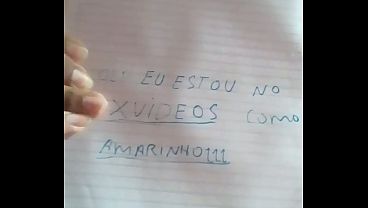 EU ESTOU NO
XVIDEOS COMO
AMARINHO111